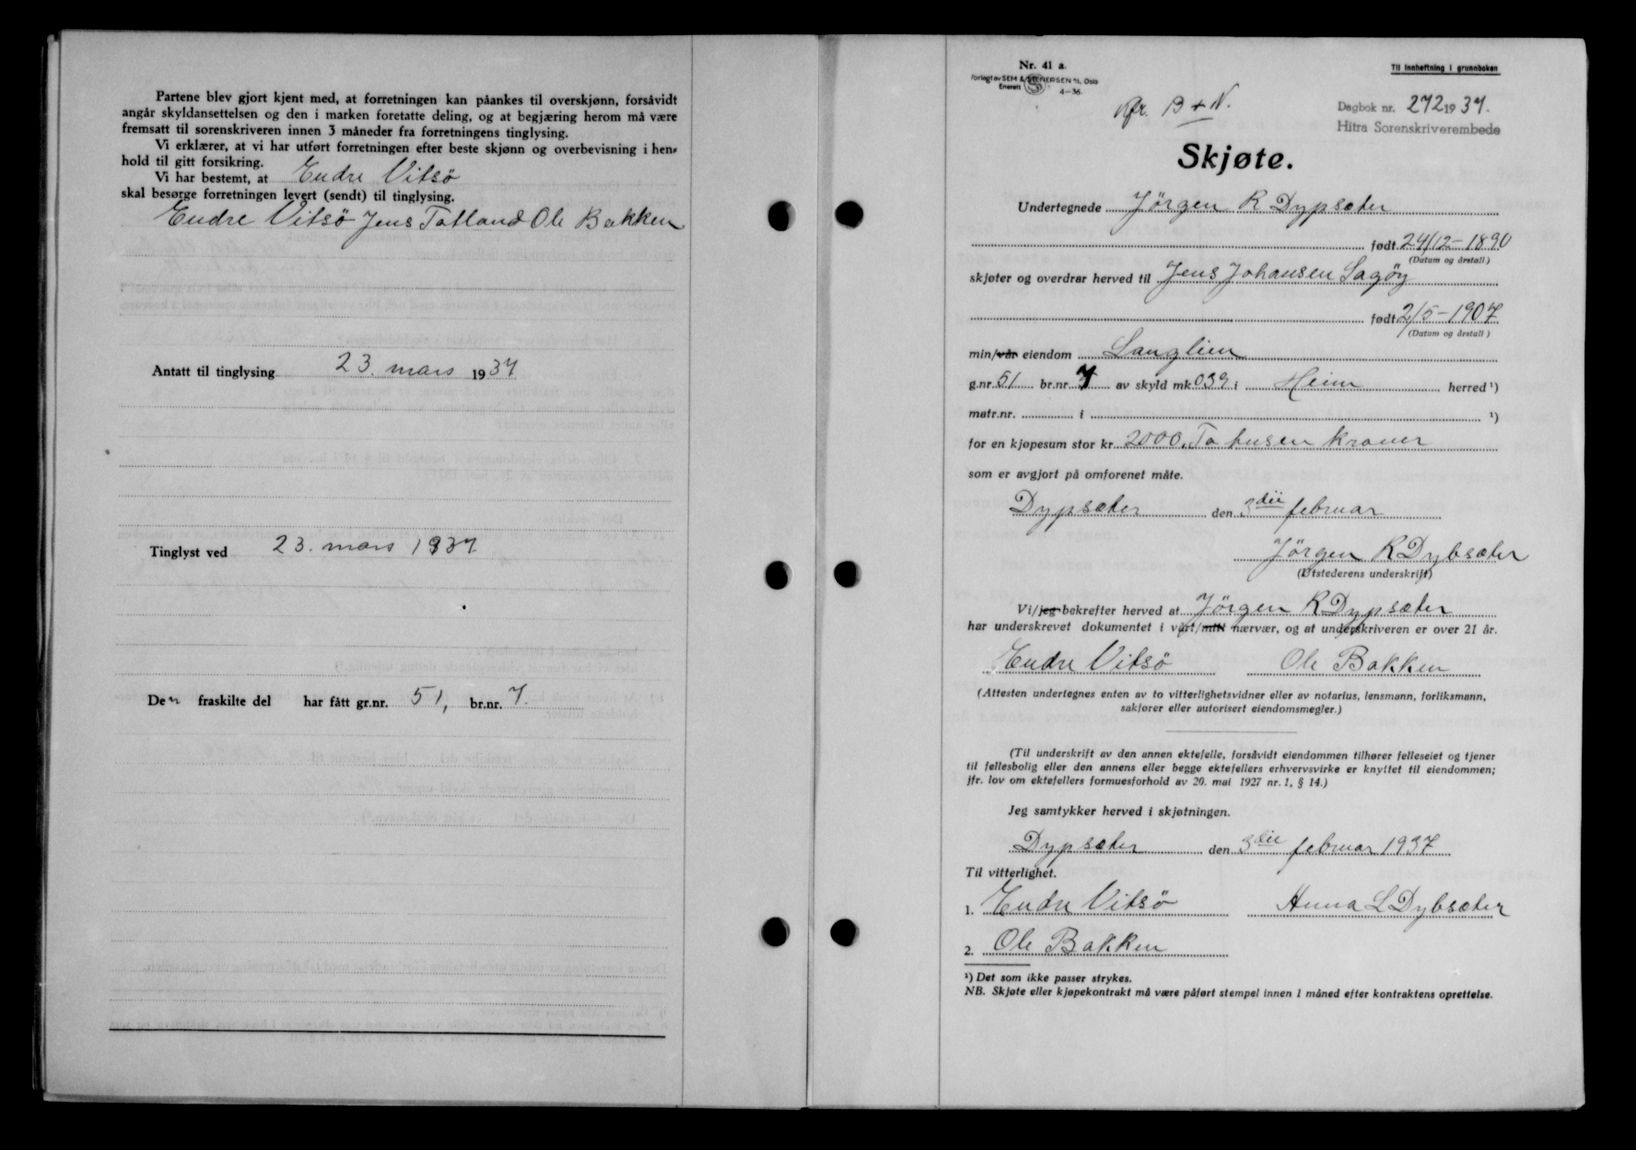 Partene blev gjort kjent med, at forretningen kan påankes til overskjønn, forsåvidt
angår skyldansettelsen og den i marken foretatte deling, og at begjæring herom må være
fremsatt til sorenskriveren innen 3 måneder fra forretningens tinglysing.
Vi erklærer, at vi har utført forretningen efter beste skjønn og overbevisning i hen-
hold til gitt forsikring.
Vi har bestemt, at Endre Vitsö
skal besørge forretningen levert (sendt) til tinglysing.
Endre Vitsö Jens Tatland Ole Bakken
Antatt til tinglysing 23. mars 1937
Tinglyst ved 23. mars 1937
Den fraskilte del har fått gr.nr. 51, br.nr. 7.
Nr. 41 a.
Forlagt av SEM & STENERSEN A/S, Oslo
Enerett 4-36
Til innheftning i grunnboken
B + N.
Dagbok nr. 272 1937.
Hitra Sorenskriverembede
Skjøte.
Undertegnede Jörgen R Dypsæter
født 24/12-1890
(Datum og årstall)
skjøter og overdrar herved til Jens Johansen Sagöy
født 2/5-1907
(Datum og årstall)
min/vår eiendom Langlien
g.nr. 51 br.nr. 7 av skyld mk 039 i Heim herred ¹)
matr.nr. i ¹)
for en kjøpesum stor kr. 2000. To tusen kroner
som er avgjort på omforenet måte.
Dypsæter den 3die februar
Jörgen R Dybsæter
(Utstederens underskrift)
Vi/jeg bekrefter herved at Jörgen R Dypsæter
har underskrevet dokumentet i vårt/mitt nærvær, og at underskriveren er over 21 år.
Endre Vitsö Ole Bakken
(Attesten undertegnes enten av to vitterlighetsvidner eller av notarius, lensmann, forliksmann,
sakfører eller autorisert eiendomsmegler.)
(Til underskrift av den annen ektefelle, forsåvidt eiendommen tilhører felleseiet og tjener
til fellesbolig eller den annens eller begge ektefellers erhvervsvirke er knyttet til eiendommen;
jfr. lov om ektefellers formuesforhold av 20. mai 1927 nr. 1, § 14.)
Jeg samtykker herved i skjøtningen.
Dypsæter den 3die februar 1937
Til vitterlighet.
1. Endre Vitsö Anna L Dybsæter
2. Ole Bakken
¹) Det som ikke passer strykes.
NB. Skjøte eller kjøpekontrakt må være påført stempel innen 1 måned efter kontraktens oprettelse.